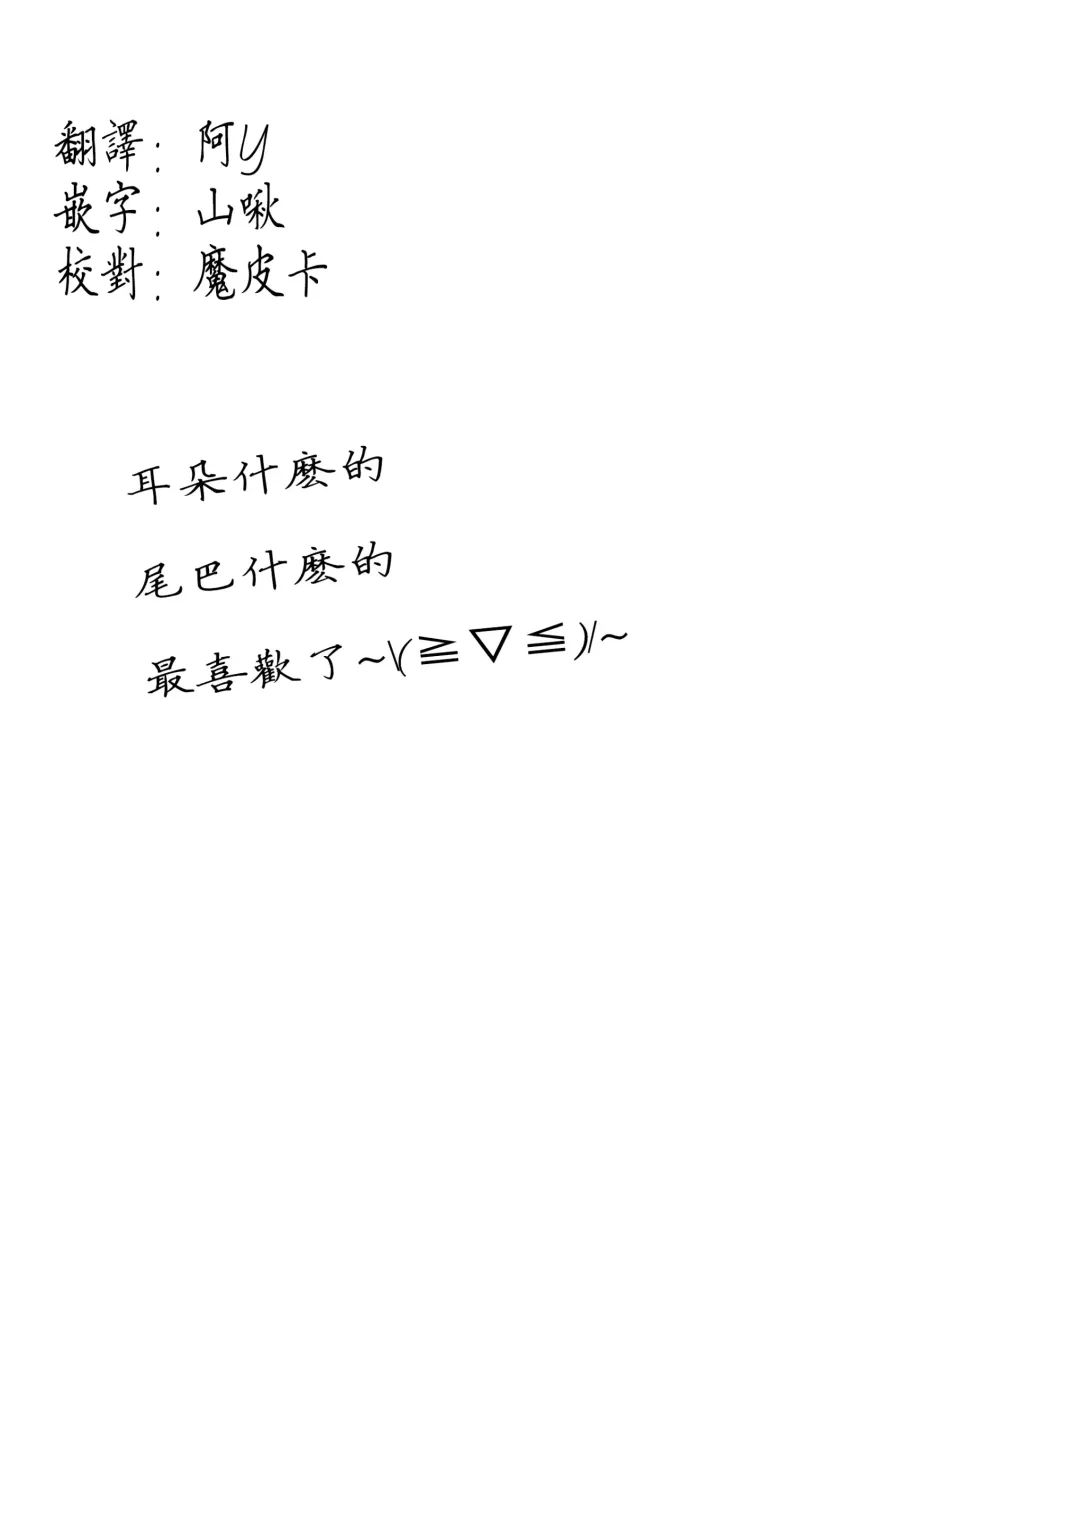 翻譯：阿Y
嵌字：山啾
校對：魔皮卡
耳朵什麽的
尾巴什麽的
最喜歡了~\(≧▽≦)/~